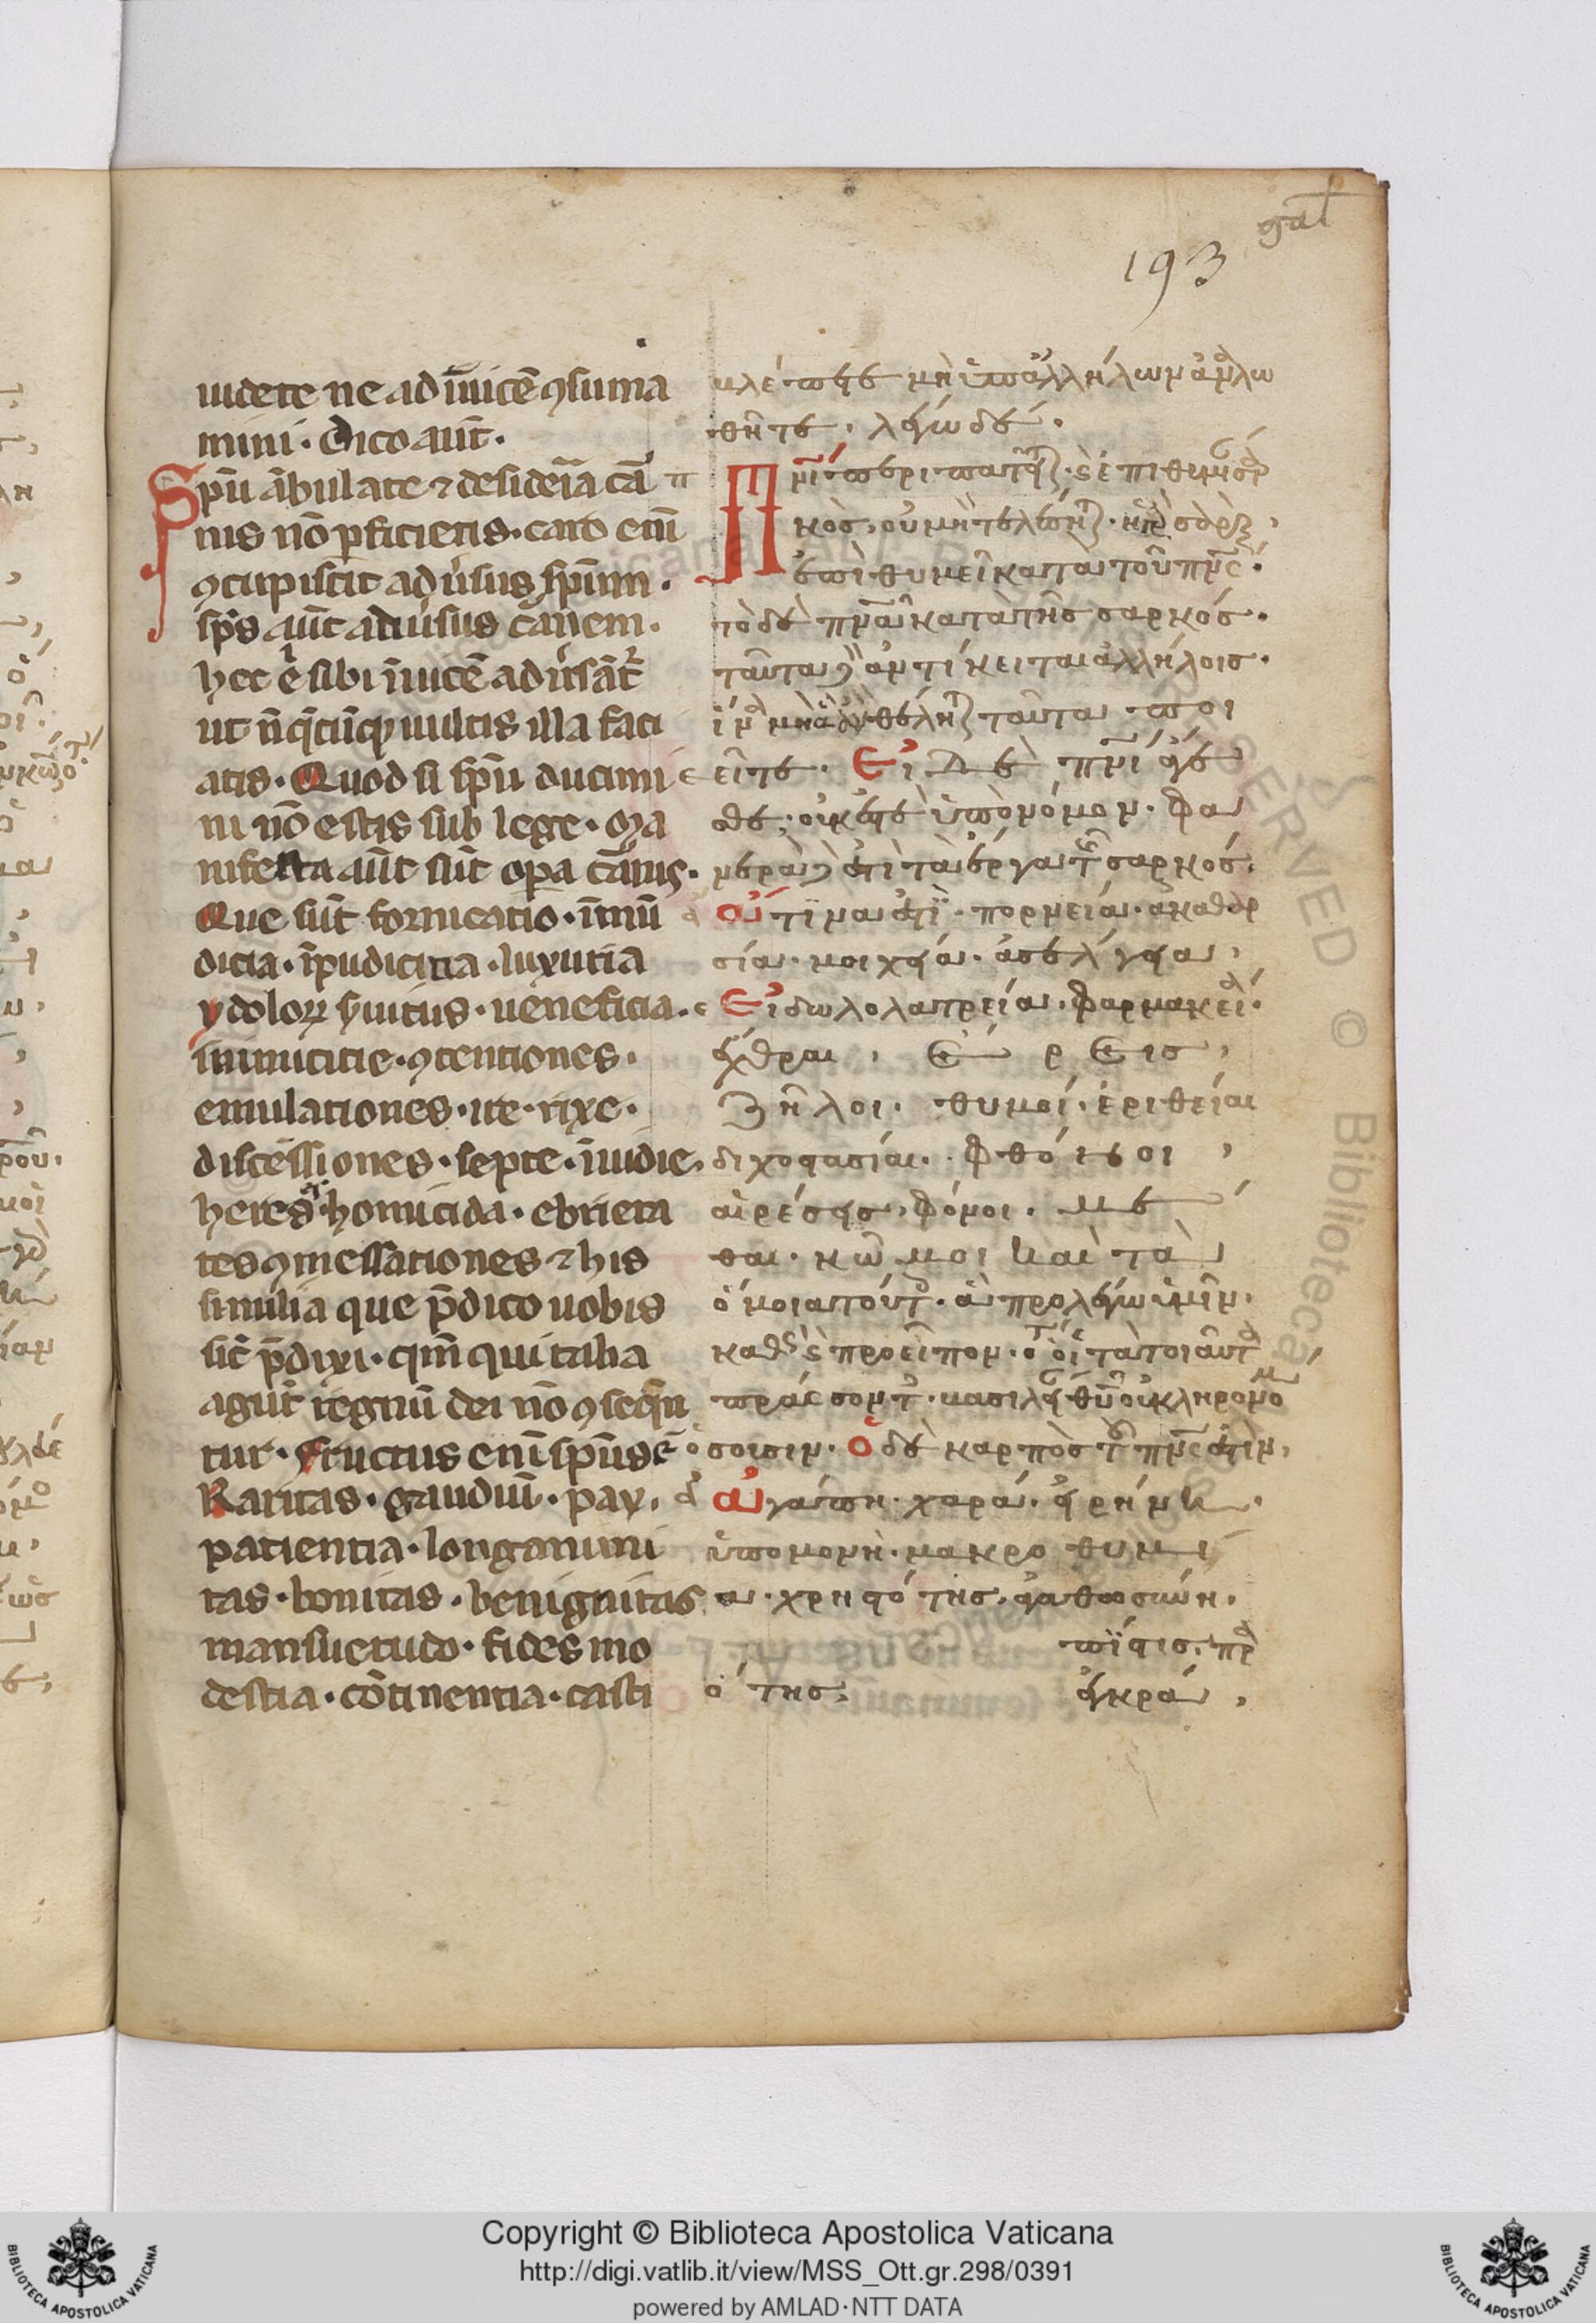 gal
193
uidete ne ad īuicē ꝯsuma
mini · Dico aut̄ ·
Spū ābulate ⁊ desideria cā
nis nō ꝑficietis · caro eni
ꝯcupiscit aduersus spm ·
sps aut̄ aduersus carnem ·
hec ē sibi īuicē aduersāt
ut ñ q̄cūq̄ uultis illa faci
atis · Quod si spū ducimi
ni nō estis sub lege · Ma
nifesta aūt sūt opa carnis ·
Que sūt fornicatio · īmū
dicia · īpudicitia · luxuria
ydoloꝝ seruitus · ueneficia ·
inimicitie · ꝯtentiones ·
emulationes · ire · rixe ·
discessiones · septe · īuidie ·
heres · homicida · ebrieta
tes ꝯmessationes ⁊ his
similia que p̄dico uobis
sic̄ p̄dixi · qm̄ qui talia
agūt regnū dei nō ꝯseqū
tur · fructus enī spūs ē
Karitas · gaudiū · pax ·
patientia · longanimi
tas · bonitas · benignitas
mansuetudo · fides mo
destia · cōtinentia · casti
βλέπετε μὴ ὑπ ἀλλήλων ἀναλω
θῆτε · λέγω δέ ·
πνι περιπατεῖτε · ἐπιθυμίαν σαρ
κὸς, οὐ μὴ τελέσητε · ἡ γὰρ σὰρξ
ἐπιθυμεῖ κατὰ τοῦ πνς ·
τὸ δὲ πνα κατὰ τῆς σαρκός ·
ταῦτα δὲ ἀντίκειται ἀλλήλοις ·
ἵνα μὴ ἃ ἂν θέλητε ταῦτα ποι
εῖτε · Εἰ δὲ πνι ἄγε
σθε · οὐκ ἐστὲ ὑπὸ νόμον · φα
νερὰ δέ ἐστι τὰ ἔργα τῆς σαρκός ·
ἅτινά ἐστι · πορνεία · ἀκαθαρ
σία · μοιχεία · ἀσέλγεια ·
Εἰδωλολατρεία · φαρμακεία ·
ἔχθραι · έρεις ·
ζῆλοι · θυμοί · ἐριθείαι
διχοστασίαι · φθόνοι ·
αἱρέσεις · φόνοι · μέ
θαι · κῶμοι καὶ τὰ
ὅμοια τούτοις · ἃ προλέγω ὑμῖν ·
καθὼς προεῖπον · ὅτι οἱ τὰ τοιαῦτα
πράσσοντες · βασιλείαν θυ οὐ κληρονομή
σουσιν · ὁ δὲ καρπὸς τοῦ πνς ἐστὶν ·
ἀγάπη · χαρά · εἰρήνη ·
ὑπομονὴ · μακροθυμί
α · χρηστότης · ἀγαθωσύνη ·
πίστις · πρα
ότης · ἐγκρά
Copyright © Biblioteca Apostolica Vaticana
http://digi.vatlib.it/view/MSS_Ott.gr.298/0391
powered by AMLAD·NTT DATA